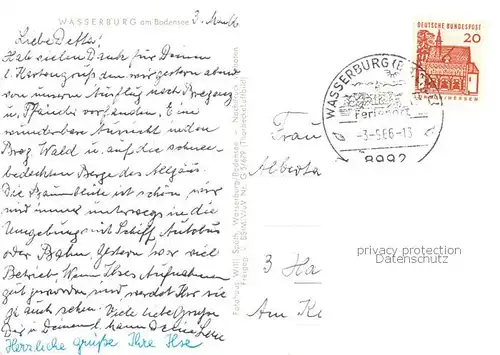 WASSERBURG am Bodensee
3. Mai 66
Liebe Detta!
Hab vielen Dank für Deinen
l. Kartengruß den wir gestern abend
von unserm Ausflug nach Bregenz
u. Pfänder vorfanden. Eine
wunderbare Aussicht in den
Breg. Wald u. auf die schnee-
bedeckten Berge des Allgäus.
Die Baumblüte ist schön, wir
sind immer unterwegs in die
Umgebung mit Schiff Autobus
oder Bahn, Gestern war viel
Betrieb. Wenn Ilses Aufnahmen
gut geworden sind, werdet Ihr sie
ja auch sehen. Viele liebe Grüße
Dir u. Deinem l. Mann
Herzliche Grüße Ihre Ilse
Fotohaus Willi Spath, Wasserburg/Bodensee
DEUTSCHE BUNDESPOST
20
LORSCH/HESSEN
WASSERBURG (BODENSEE)
Ferienort
-3-566-13
8992
Frau
Alberta
3 Ha
Am
privacy protection
Datenschutz